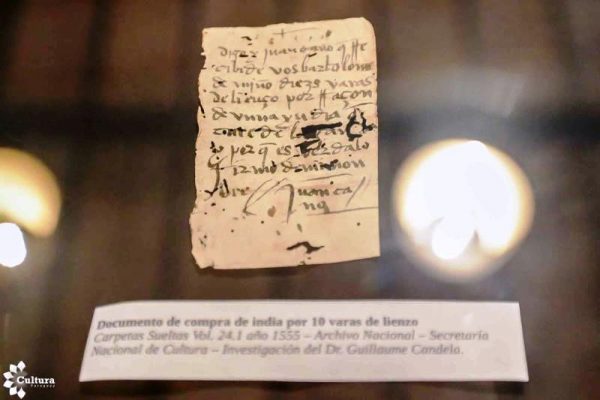 digo yo juan cano q̄ Re
cibi de vos bartolome
de miño diez varas
de lienço por rraçon
de vna yndia
por q̄ es verdad lo
firmo de mi non
bre Juan ca
no
Documento de compra de india por 10 varas de lienzo
Carpetas Sueltas Vol. 24,1 año 1555 – Archivo Nacional – Secretaría
Nacional de Cultura – Investigación del Dr. Guillaume Candela.
Cultura
Paraguay